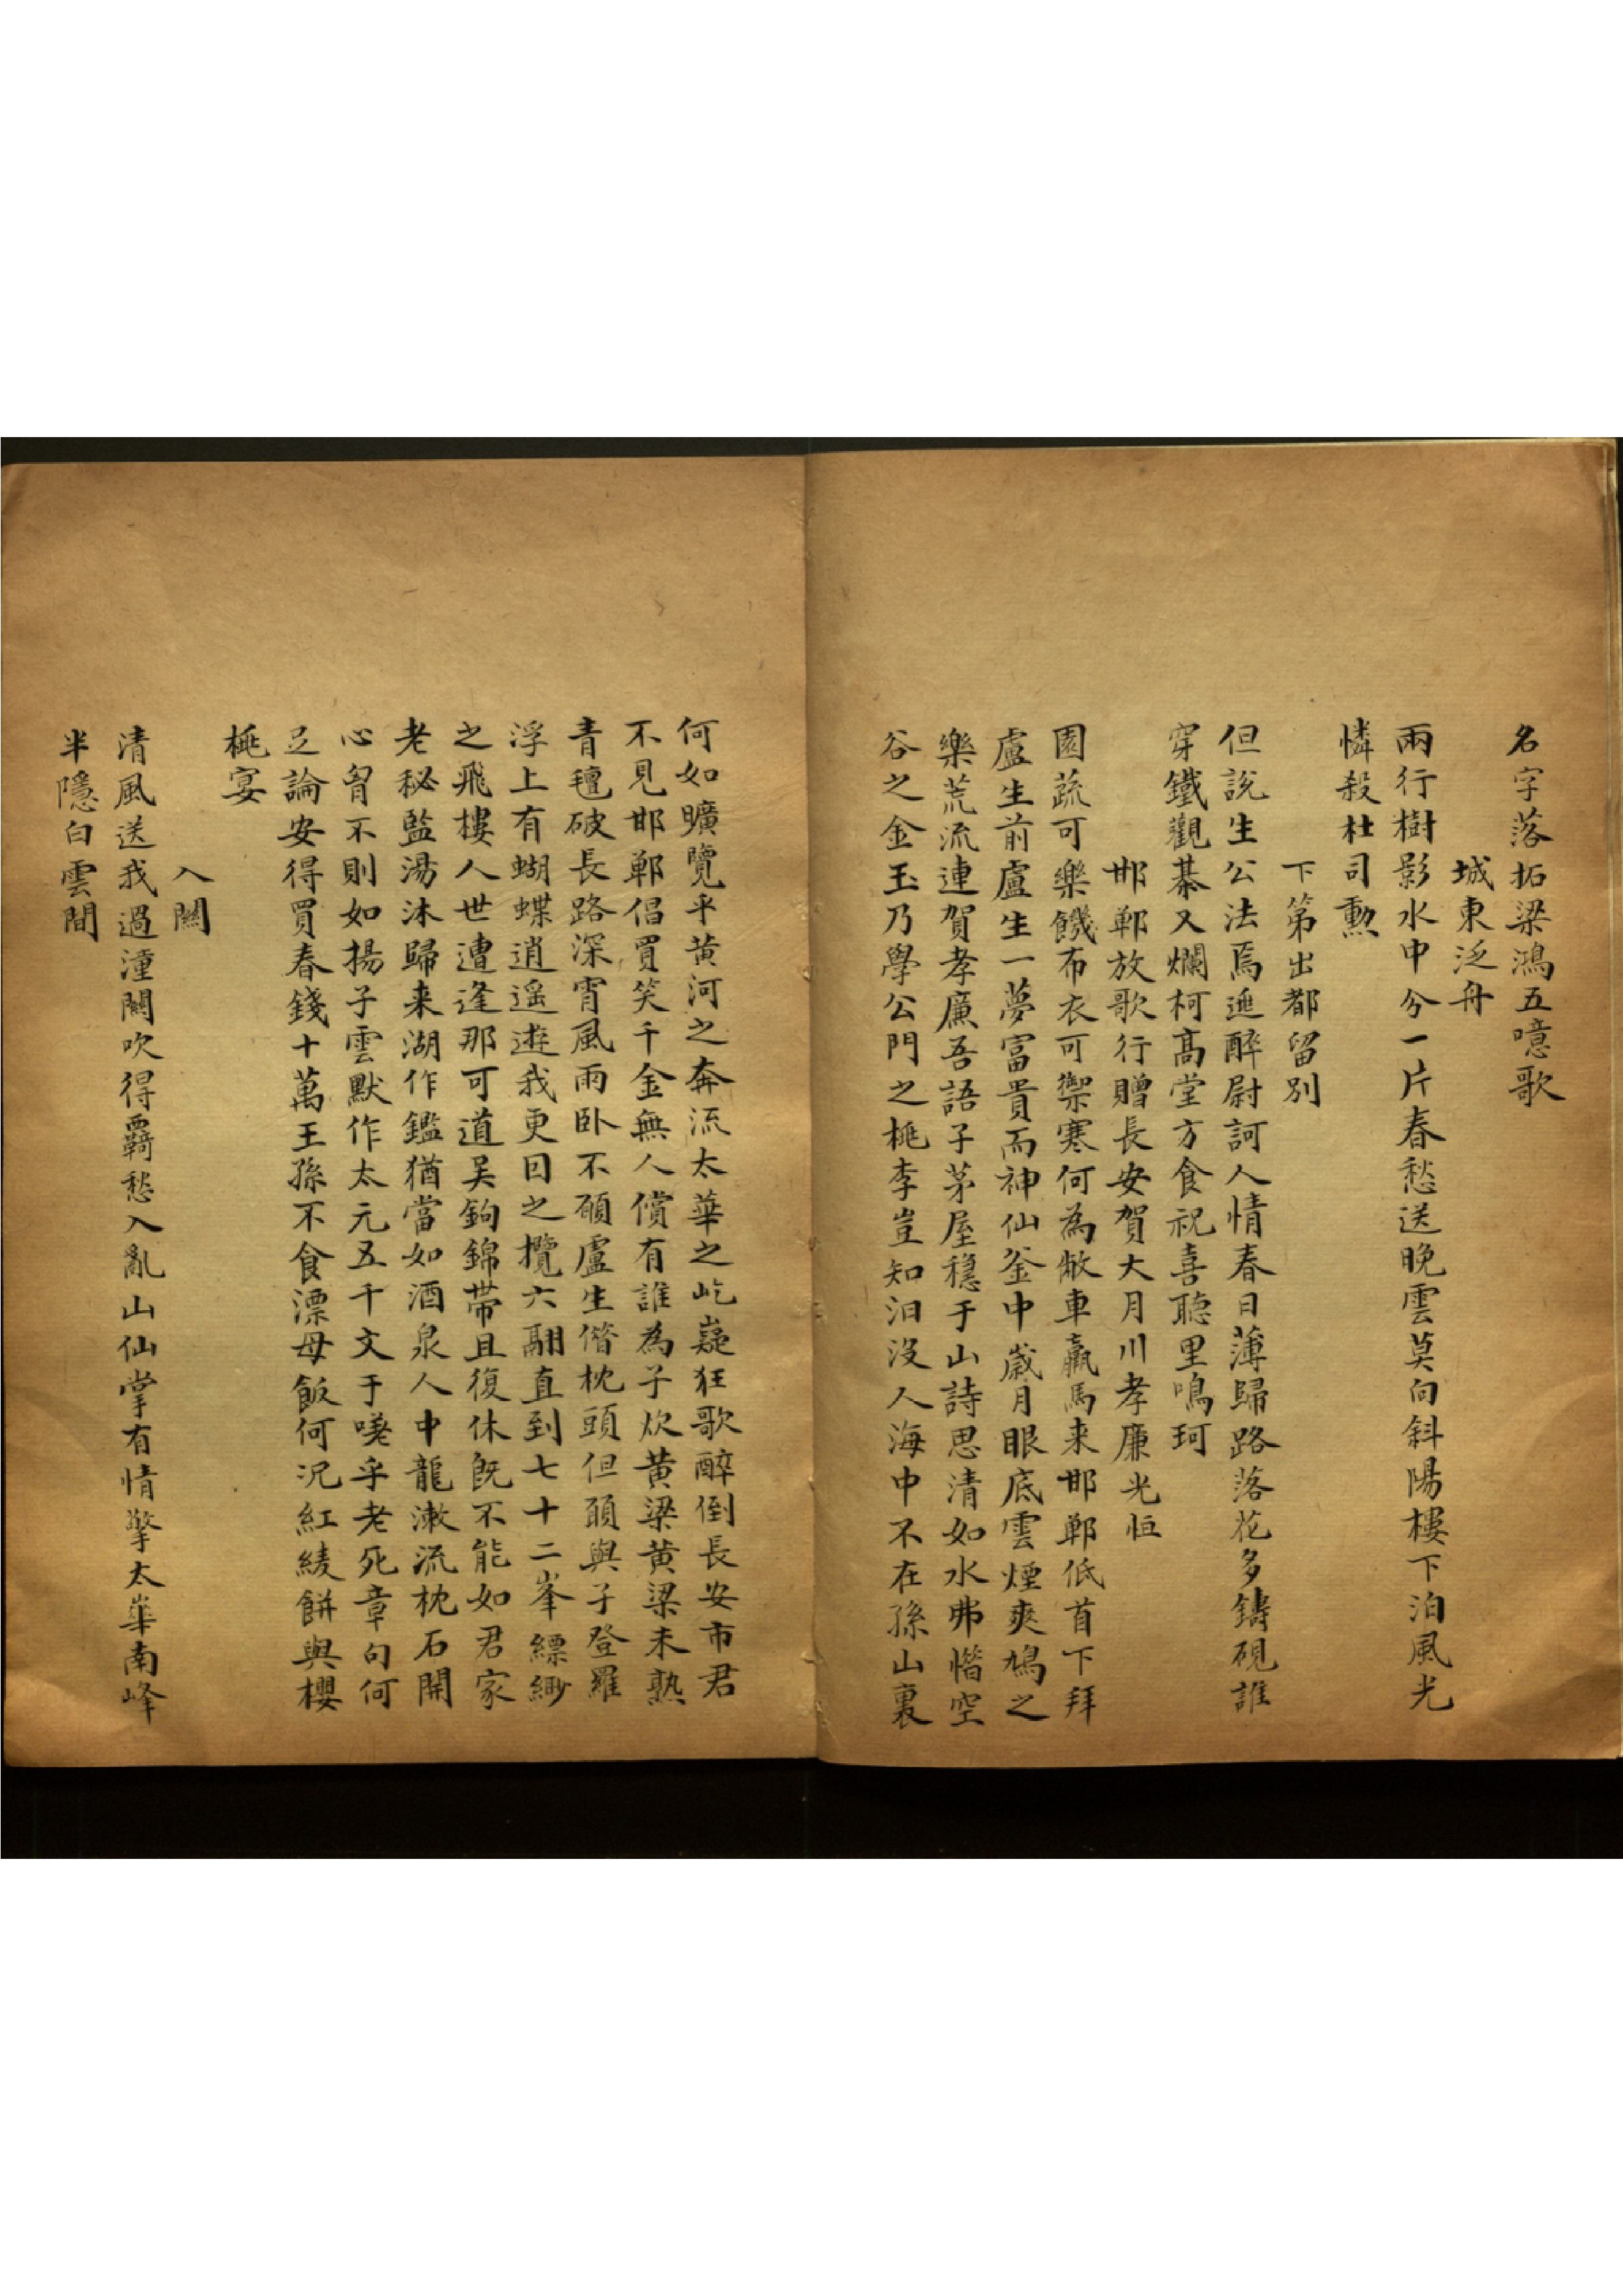 名字落拓梁鴻五噫歌
城東泛舟
兩行樹影水中分一片春愁送晚雲莫向斜陽樓下泊風光
憐殺杜司勲
下第出都留別
但說生公法焉逃醉尉訶人情春日薄歸路落花多鑄硯誰
穿鐵觀棊又爛柯高堂方食祝喜聽里鳴珂
邯鄲放歌行贈長安賀大月川孝廉光恒
園蔬可樂饑布衣可禦寒何為敝車羸馬来邯鄲低首下拜
盧生前盧生一夢富貴而神仙釜中歲月眼底雲煙爽鳩之
樂荒流連賀孝廉吾語子茅屋穩于山詩思清如水弗惜空
谷之金玉乃學公門之桃李豈知汩沒人海中不在孫山裏
何如曠覽乎黄河之奔流太華之屹嶷狂歌醉倒長安市君
不見邯鄲倡買笑千金無人償有誰為子炊黄粱黄粱未熟
青氊破長路深宵風雨卧不願盧生偕枕頭但願與子登羅
浮上有蝴蝶逍遥遊我更因之攬六翮直到七十二峯縹緲
之飛樓人世遭逢那可道吴鉤錦帶且復休既不能如君家
老秘監湯沐歸来湖作鑑猶當如酒泉人中龍漱流枕石開
心胷不則如揚子雲默作太元五千文于嗟乎老死章句何
足論安得買春錢十萬王孫不食漂母飯何况紅綾餅與櫻
桃宴
入關
清風送我過潼關吹得羇愁入亂山仙掌有情擎太華南峰
半隱白雲間